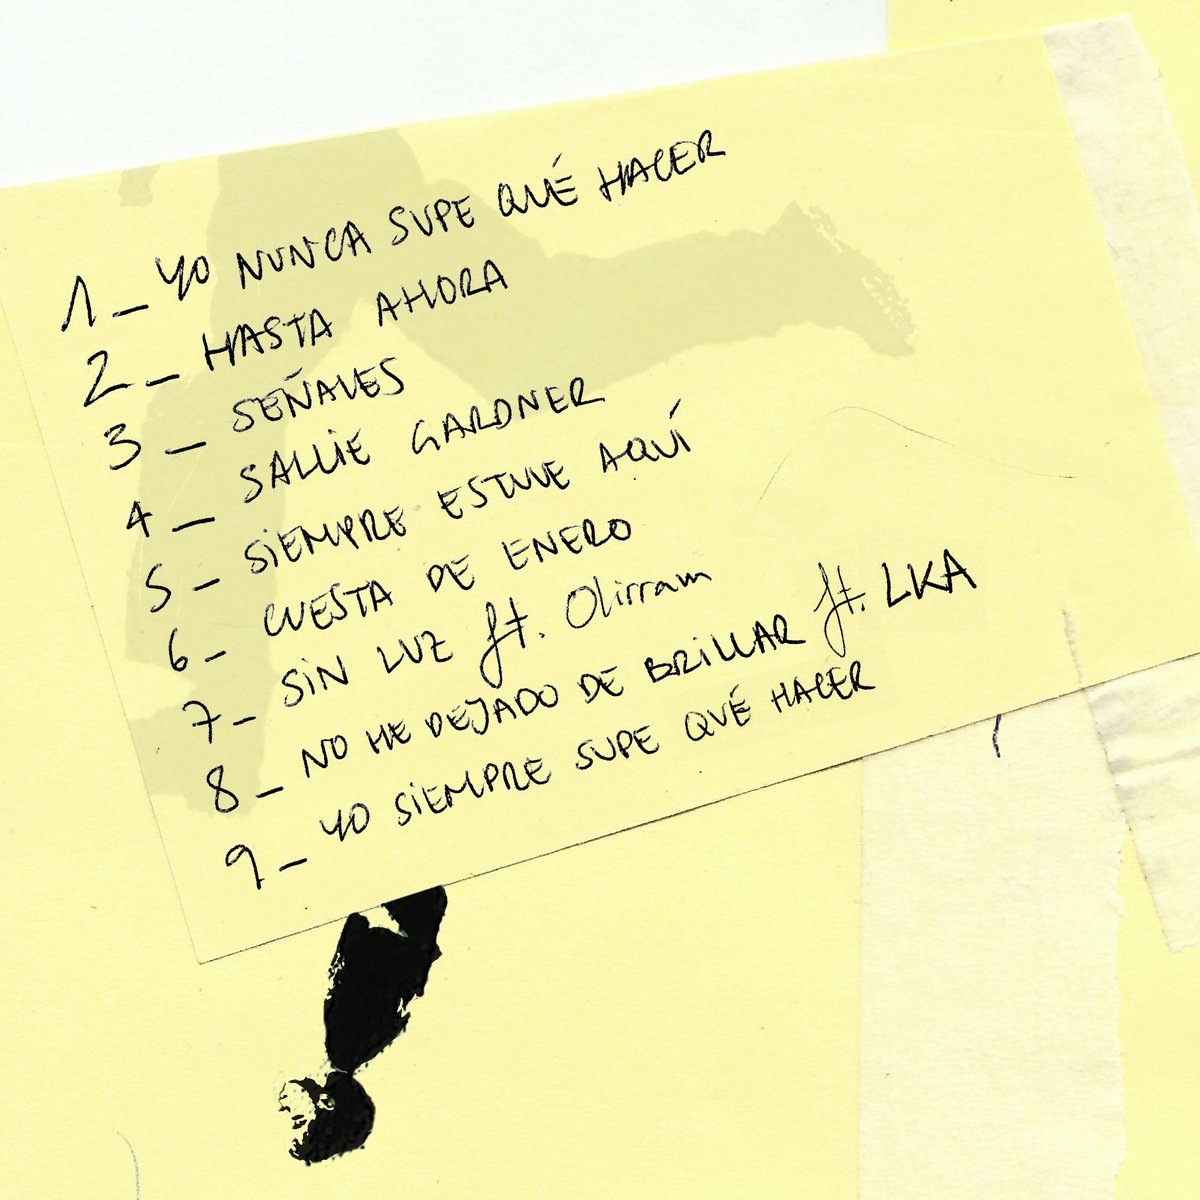 1_ YO NUNCA SUPE QUÉ HACER
2_ HASTA AHORA
3_ SEÑALES
4_ SALLIE GARDNER
5_ SIEMPRE ESTUVE AQUÍ
6_ CUESTA DE ENERO
7_ SIN LUZ ft. Olirram
8_ NO HE DEJADO DE BRILLAR ft. LKA
9_ YO SIEMPRE SUPE QUÉ HACER